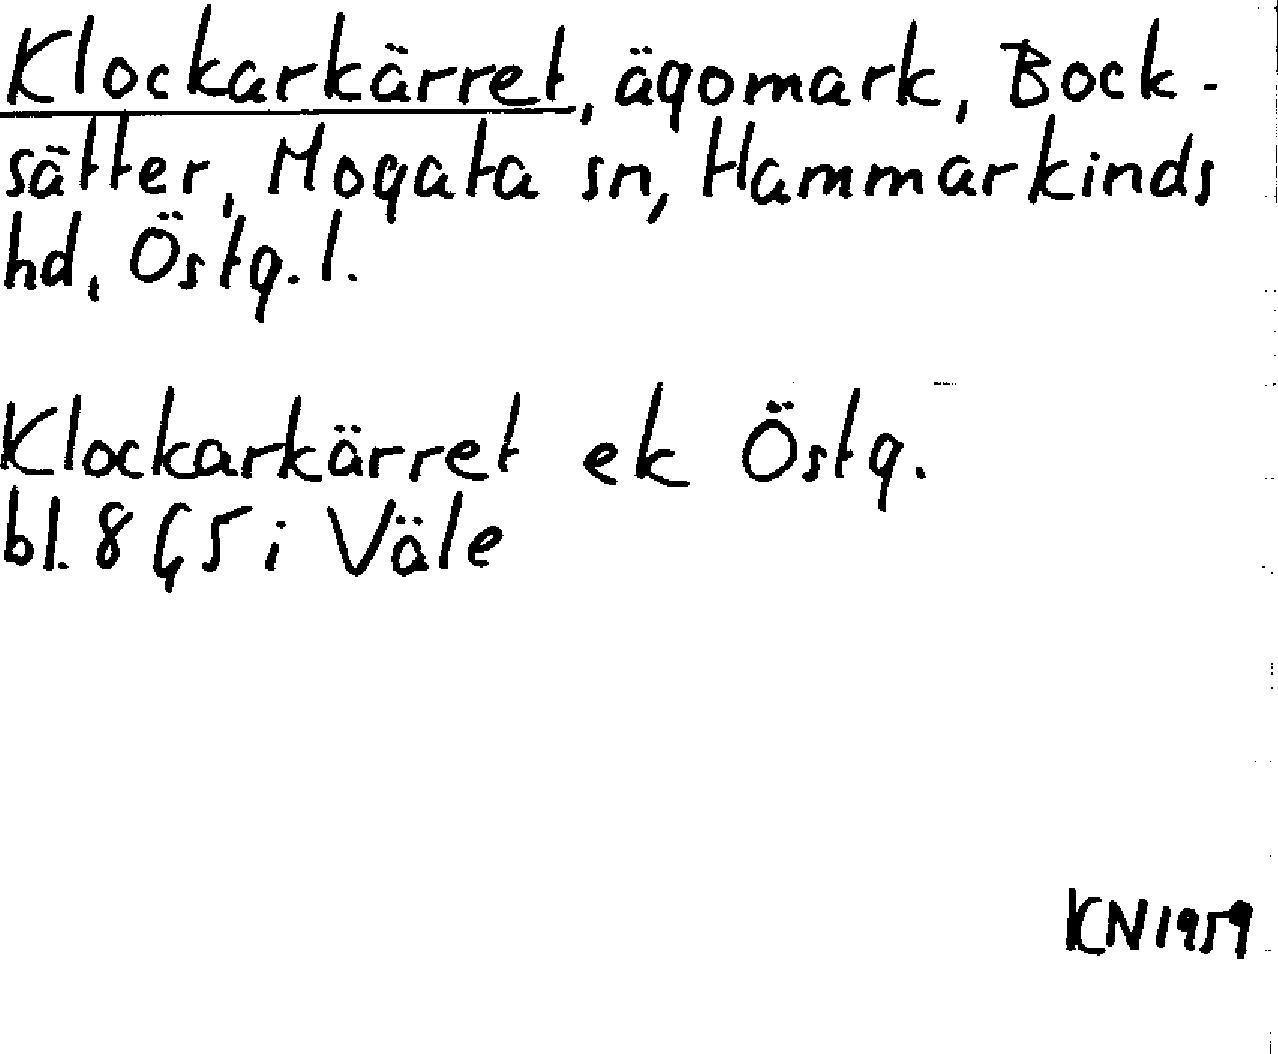 Klockarkärret, ägomark, Bock-
sätter, Mogata sn, Hammarkinds
hd, Östg. l.
Klockarkärret ek Östg.
bl. 8 G5 i Väle
KN1959